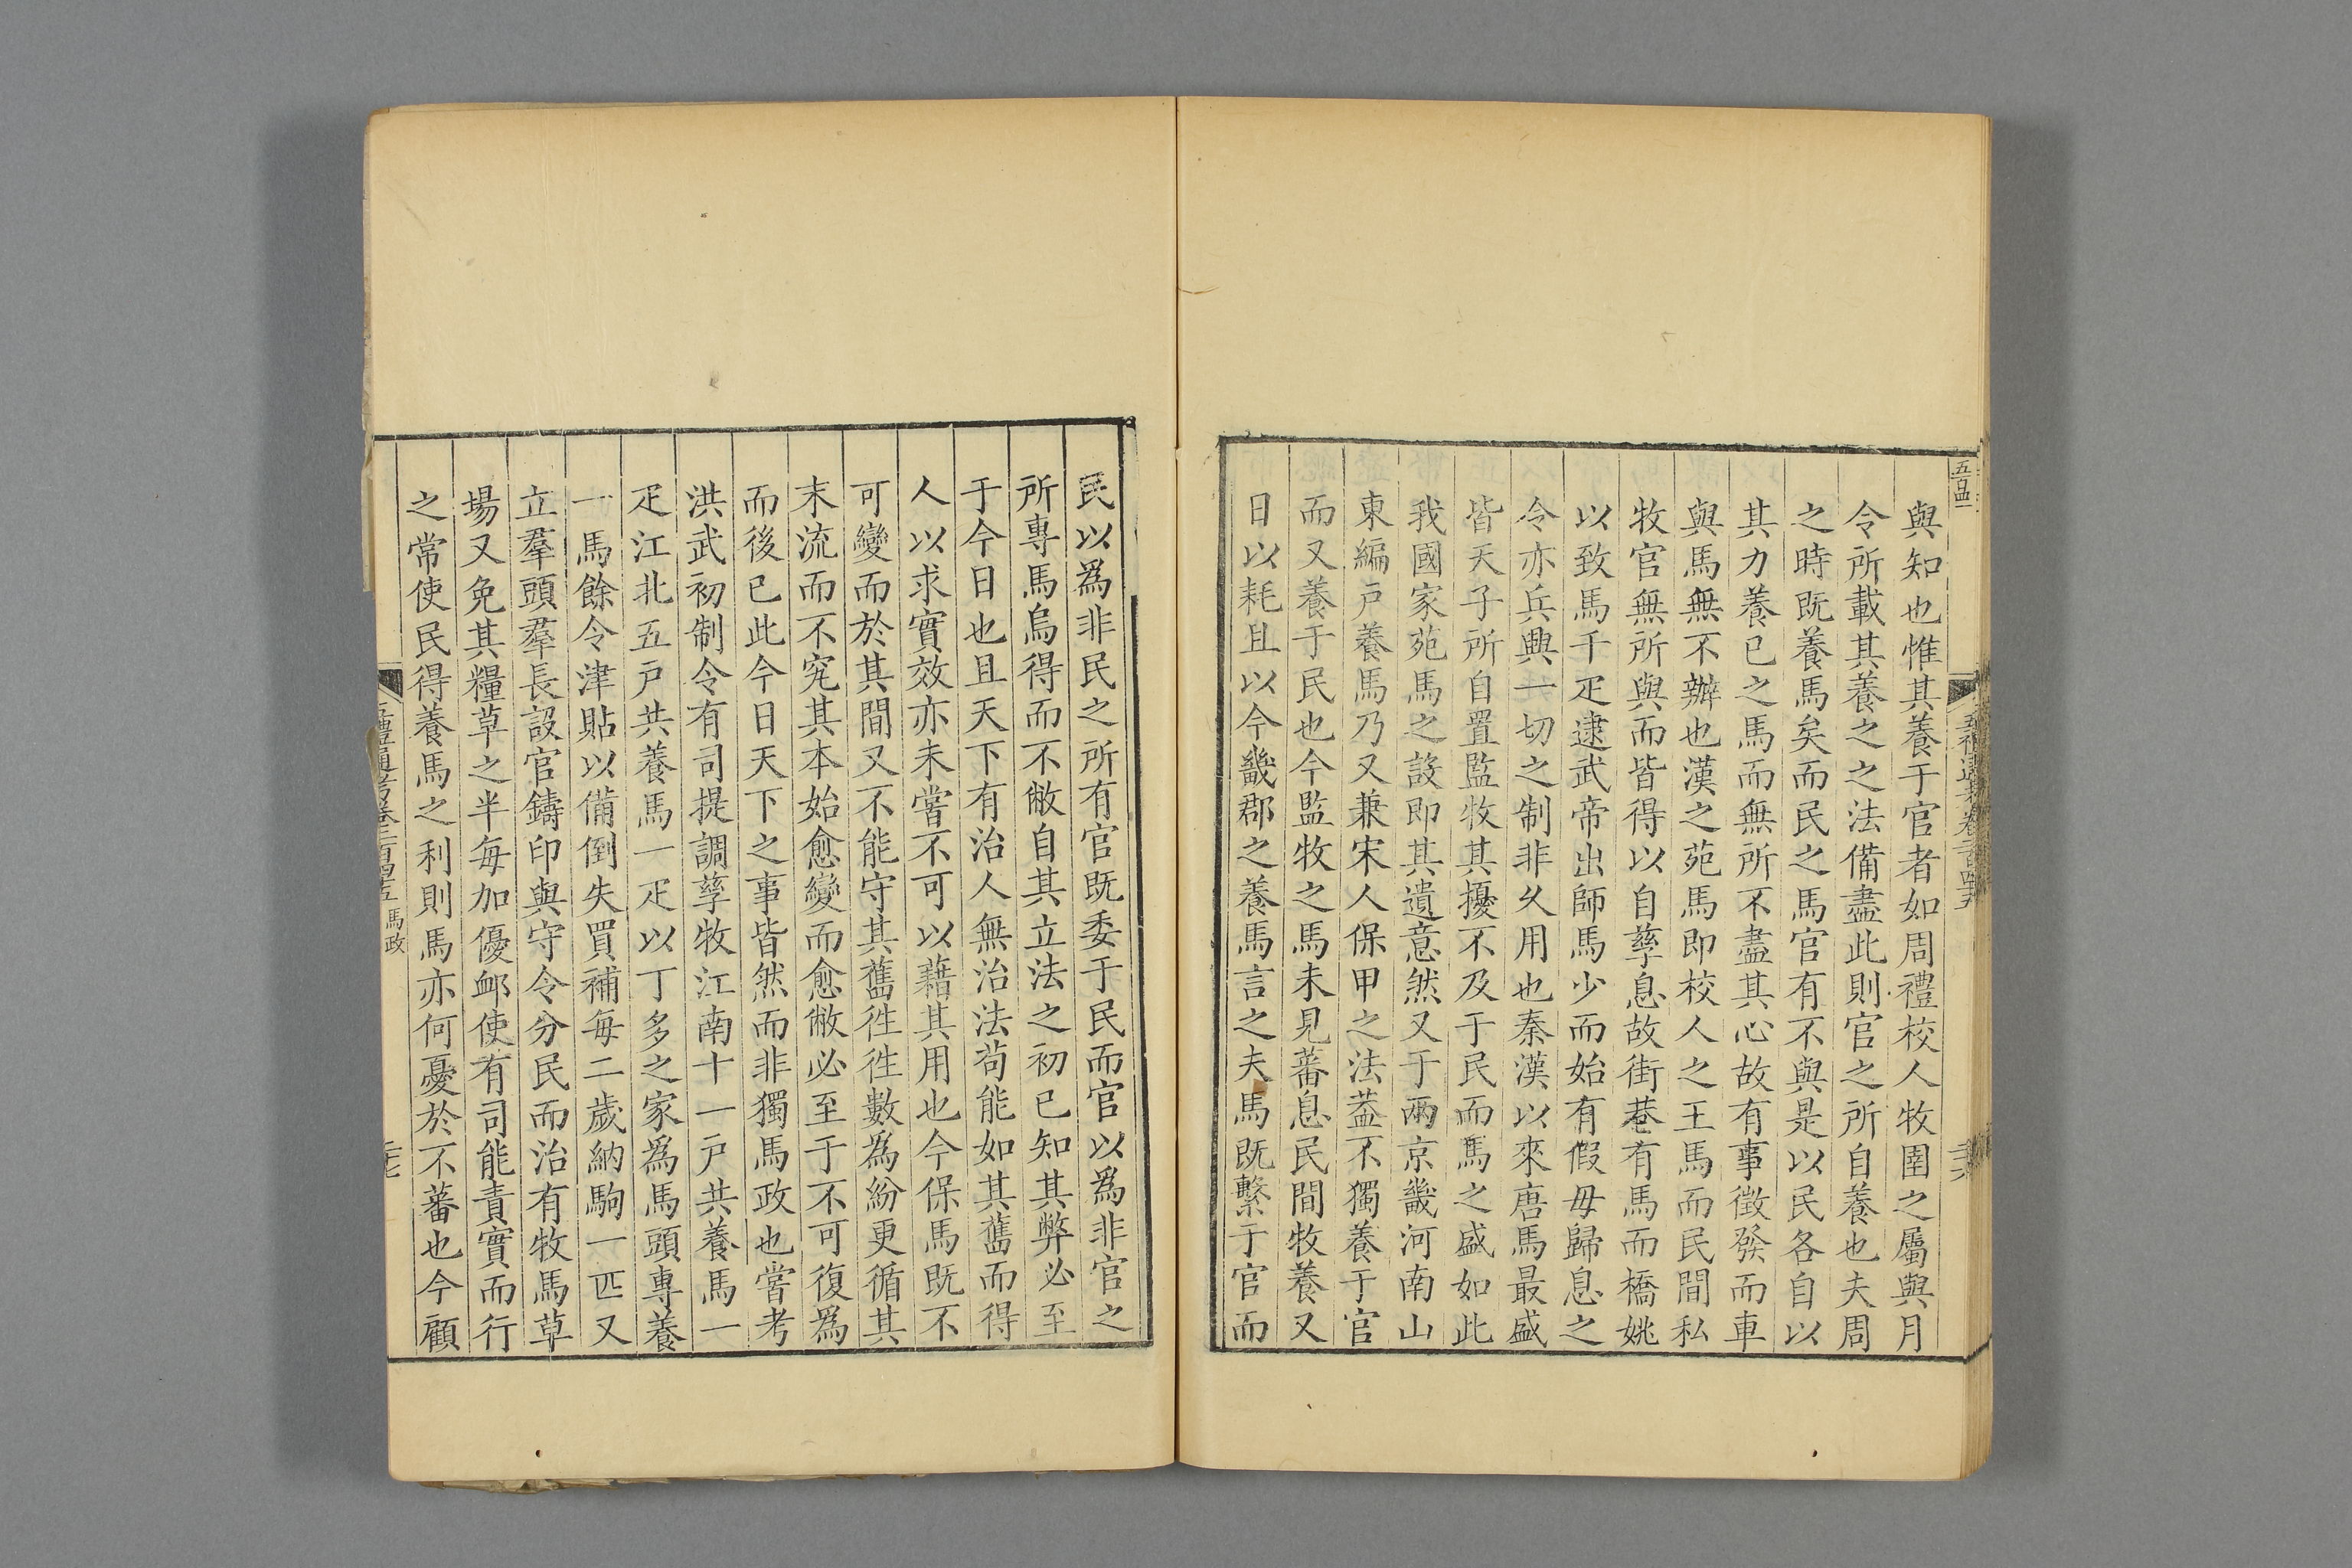 與知也惟其養于官者如周禮校人牧圉之屬與月
令所載其養之之法備盡此則官之所自養也夫周
之時既養馬矣而民之馬官有不與是以民各自以
其力養已之馬而無所不盡其心故有事徵發而車
與馬無不辦也漢之苑馬即校人之王馬而民間私
牧官無所與而皆得以自孳息故街巷有馬而橋姚
以致馬千疋逮武帝出師馬少而始有假母歸息之
令亦兵興一切之制非久用也秦漢以來唐馬最盛
皆天子所自置監牧其擾不及于民而馬之盛如此
我國家苑馬之設即其遺意然又于兩京畿河南山
東編戸養馬乃又兼宋人保甲之法葢不獨養于官
而又養于民也今監牧之馬未見蕃息民間牧養又
日以耗且以今畿郡之養馬言之夫馬既繫于官而
民以爲非民之所有官既委于民而官以爲非官之
所專馬烏得而不敝自其立法之初已知其弊必至
于今日也且天下有治人無治法法苟能如其舊而得
人以求實效亦未嘗不可以藉其用也今保馬既不
可變而於其間又不能守其舊徃徃數為紛更循其
末流而不究其本始愈變而愈敝必至于不可復爲
而後已此今日天下之事皆然而非獨馬政也嘗考
洪武初制令有司提調孳牧江南十一戸共養馬一
疋江北五戸共養馬一疋以丁多之家爲馬頭專養
一馬餘令津貼以備倒失買補每二歲納駒一匹又
立羣頭羣長設官鑄印與守令分民而治有牧馬草
場又免其糧草之半每加優邺使有司能責實而行
之常使民得養馬之利則馬亦何憂於不蕃也今顧
馬政